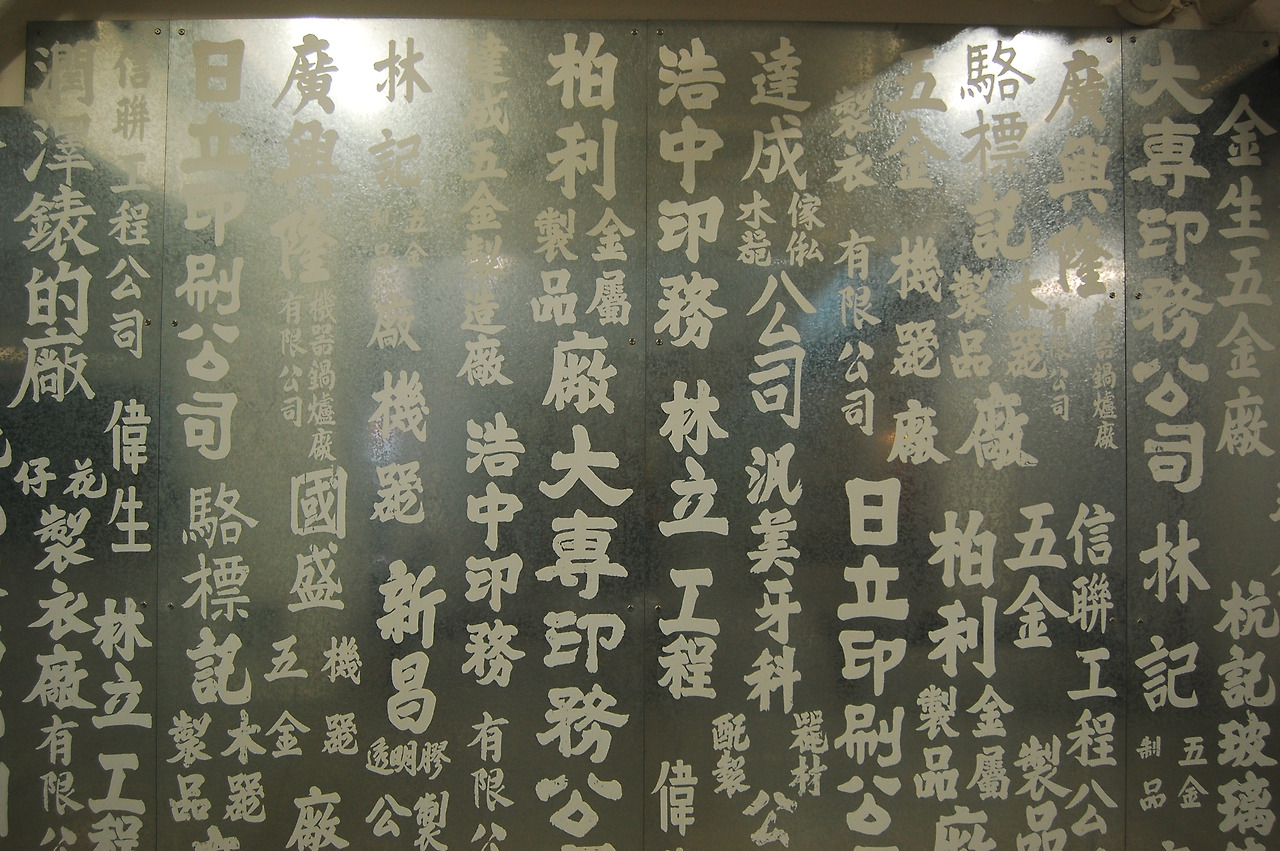 金生五金廠
杭記玻璃
大専印務公司
林記五金制品
廣興隆機器鍋爐廠有限公司
信聯工程公
駱標記木器製品廠
五金製品
五金機器廠
柏利金屬製品廠
製衣有限公司
日立印刷公
達成傢俬木器公司
汎美牙科器材配製公
浩中印務
林立工程
偉
柏利金屬製品廠
大専印務公
達成五金製造廠
浩中印務有限公
林記五金制品廠
機器
新昌透明膠製公
廣興隆機器鍋爐廠有限公司
國盛機器五金廠
日立印刷公司
駱標記木器製品
信聯工程公司
偉生
林立工程
潤澤錶的廠
花仔製衣廠有限公